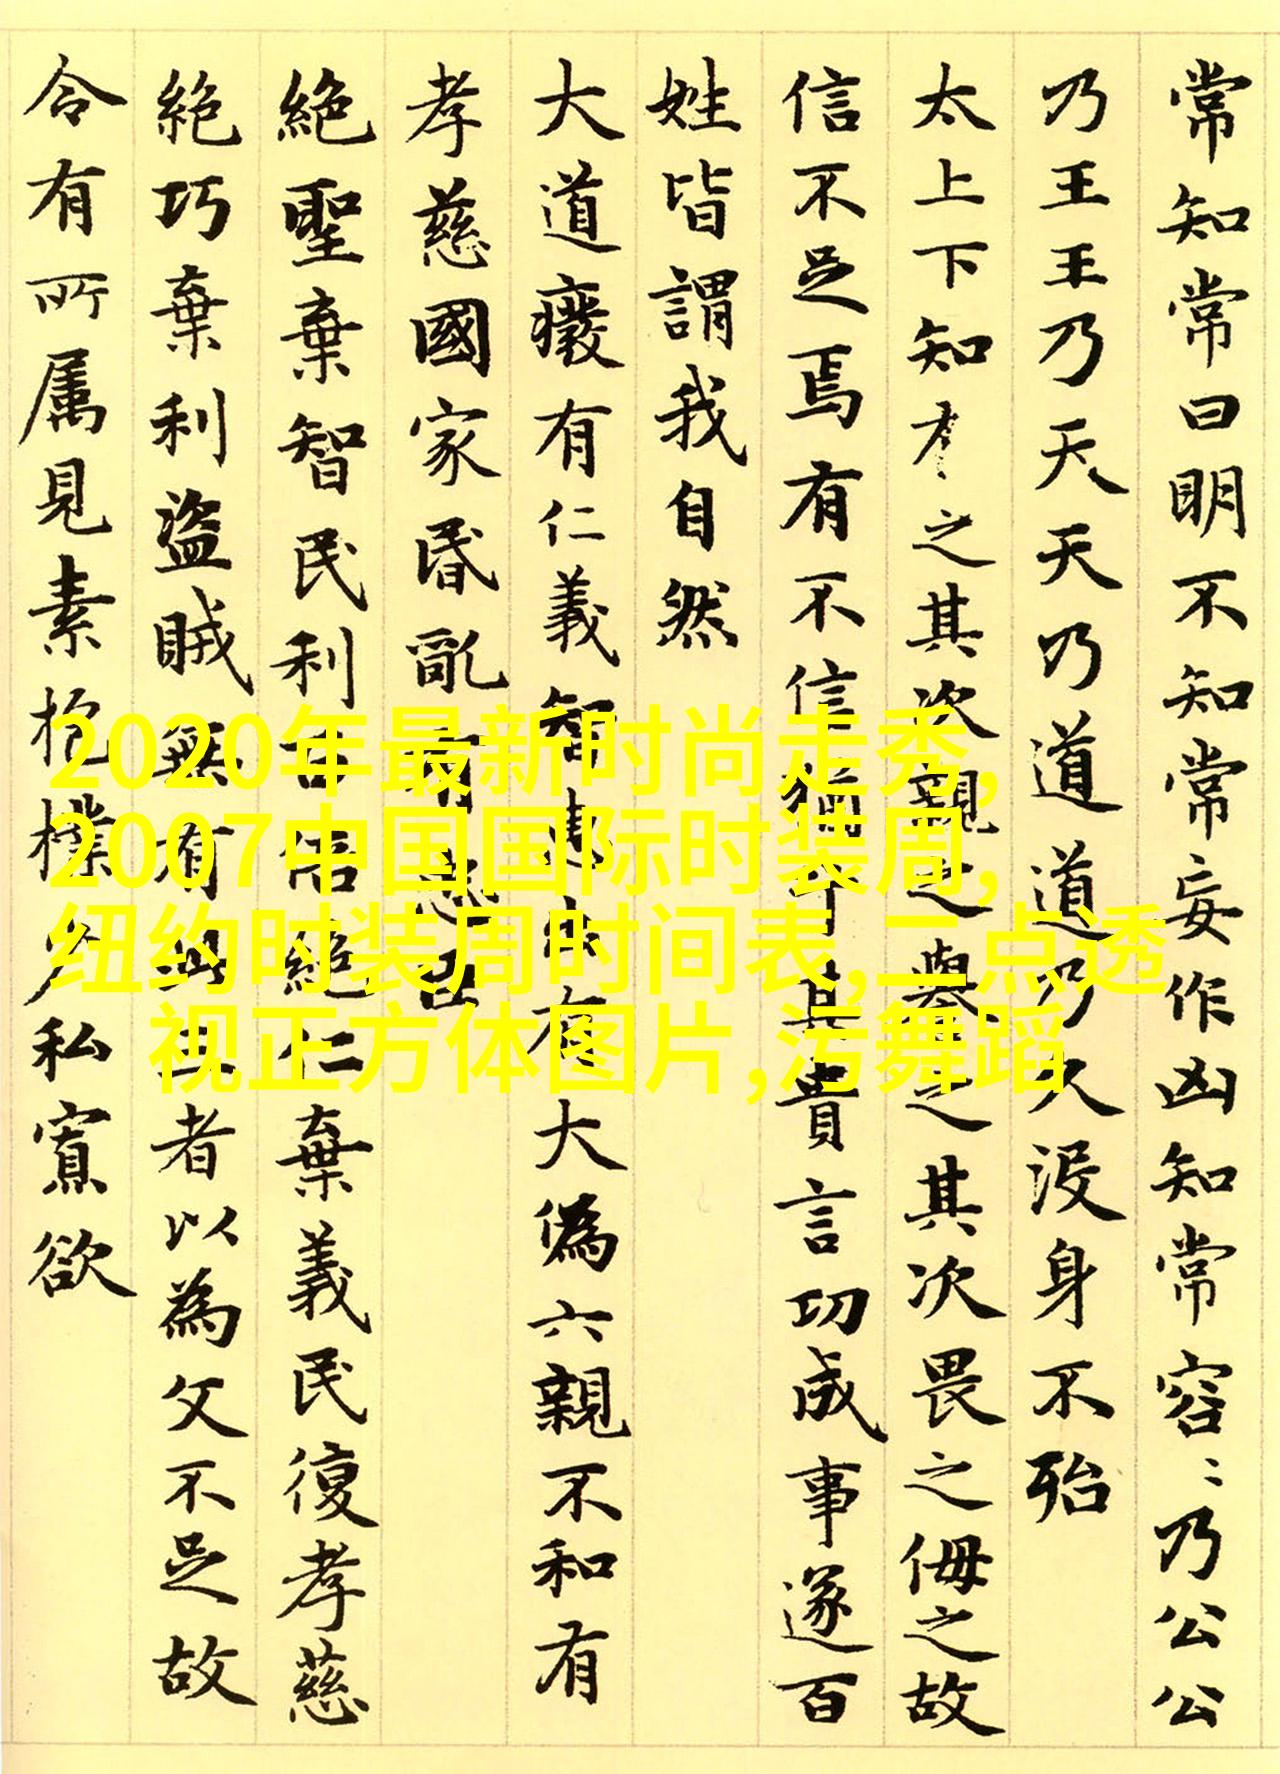 常知常曰明不知知常妄作凶知常容〻乃公公
乃王王乃天天乃道道乃久没身不殆
太上下知有之其次親之譽之其次畏之侮之故
信不足焉有不信猶其貴言功成事遂百
姓皆謂我自然
大道癈有仁義智惠出有大偽六親不和有
孝慈國家昏亂有忠臣
絶聖棄智民利百倍絶仁棄義民復孝慈
絶巧棄利盗賊無有此三者以為文不足故
令有所属見素抱樸少私寡欲
2020年最新时尚走秀,
2007中国国际时装周,
纽约时装周时间表,二点透
视正方体图片,污舞蹈